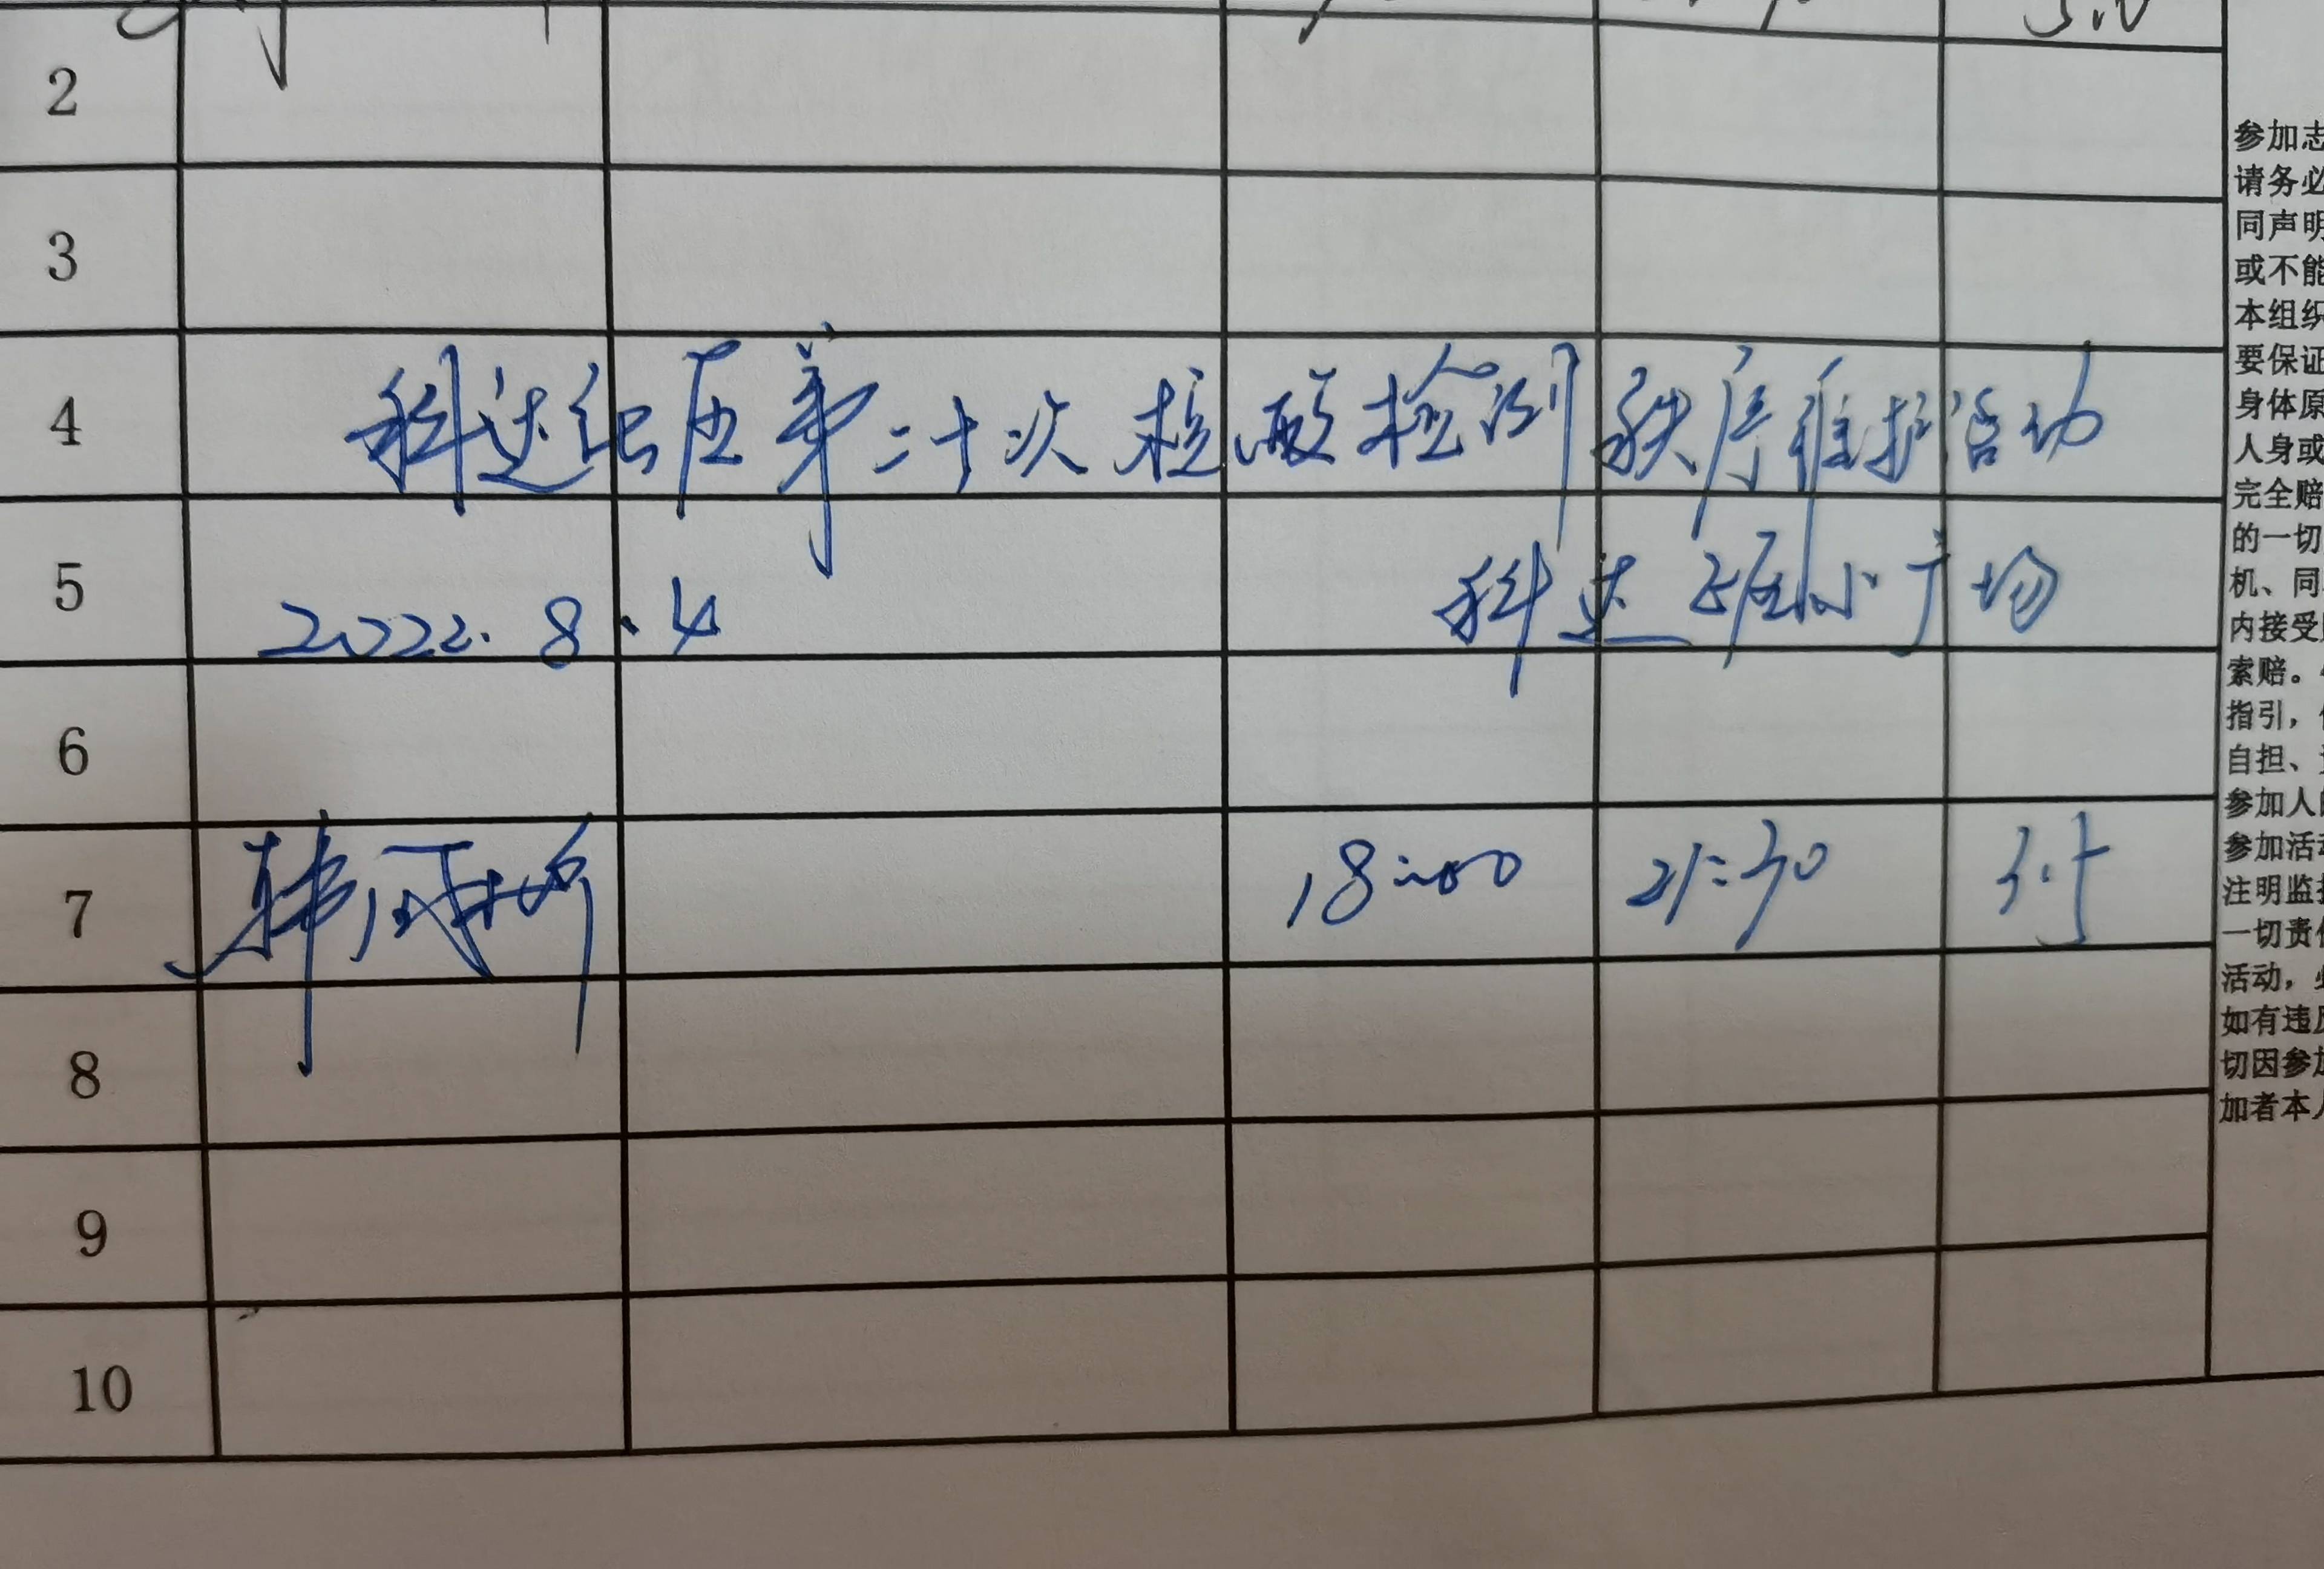 2
3
4 科达社区第二十次核酸检测秩序维护活动
5 2022.8.4 科达社区小广场
6
7 韩 18:00 21:30 3.5
8
9
10
参加志
请务必
同声明
或不能
本组织
要保证
身体原
人身或
完全赔
的一切
机、同
内接受
索赔。
指引，
自担、
参加人
参加活动
注明监
一切责
活动，
如有违反
切因参加
加者本人